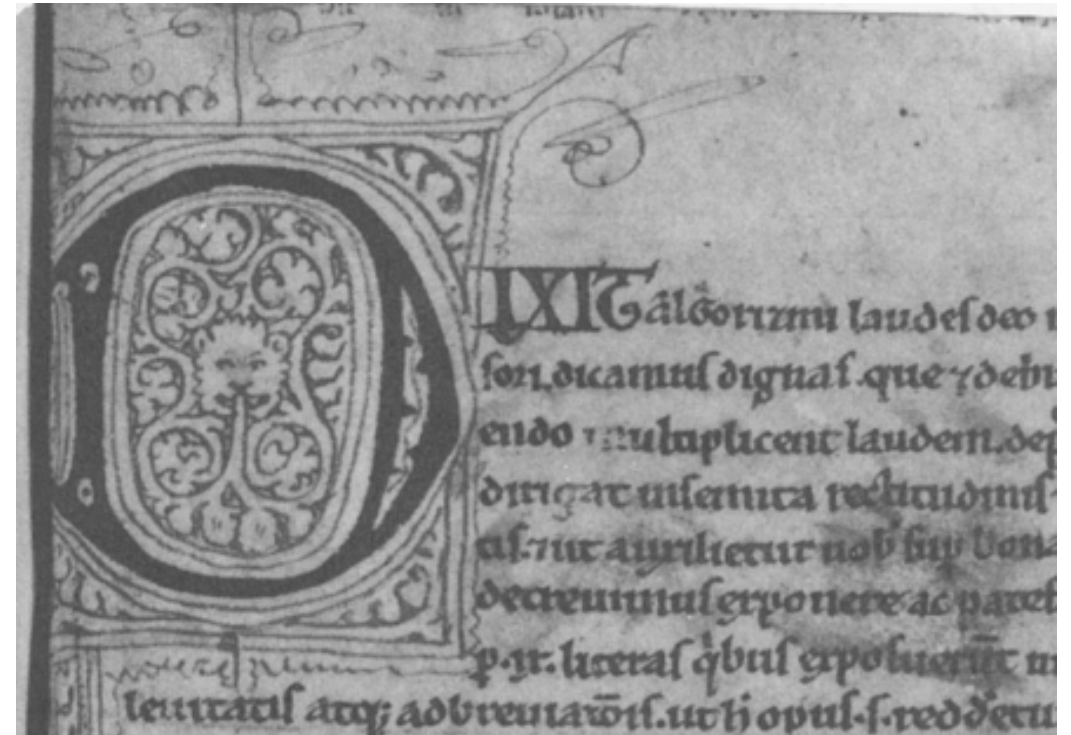 DIXIT algorizmi laudes deo
sori. dicamus dignas. que ⁊ debi
endo multiplicent laudem. dep̄
dirigat in semita rectitudinis
tis. ⁊ ut auxilietur nob̄ sup̄ bona
decrevimus exponere ac patef
p̄. ix. literas q̇bus exposuer̄t in
levitatis atq; adbreviatōis. ut h̄ opus. s. redd̓etu